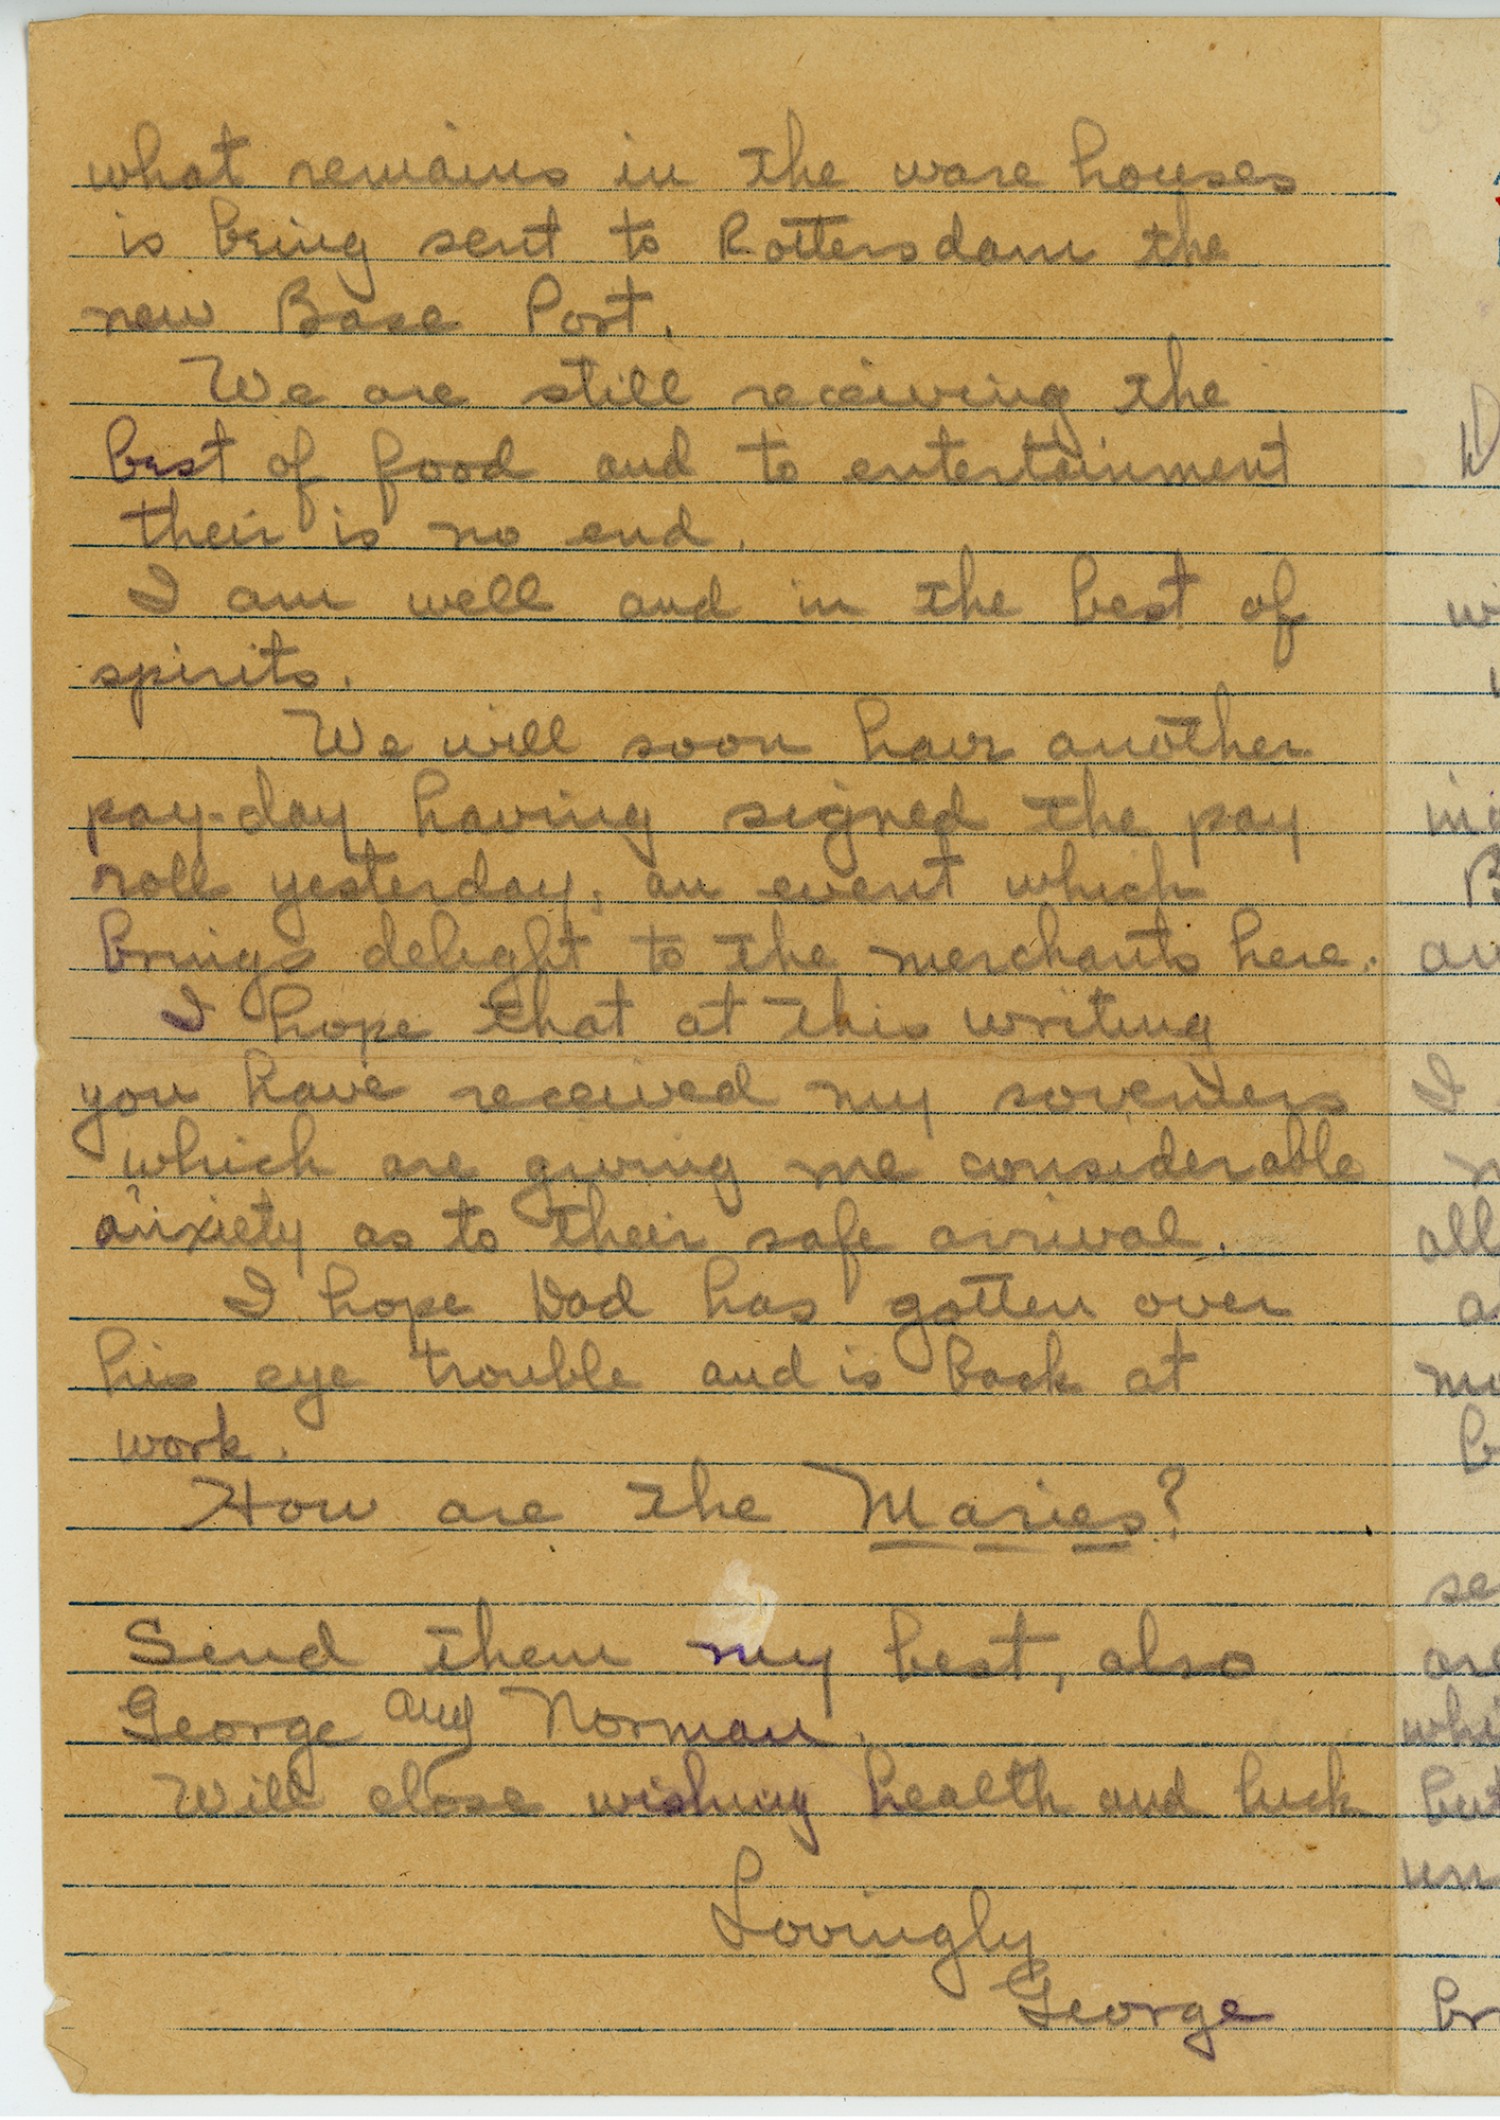 what remains in the ware houses
is being sent to Rottersdam the
new Base Port.
We are still receiving the
best of food and to entertainment
their is no end.
I am well and in the best of
spirits.
We will soon have another
pay-day, having signed the pay
roll yesterday; an event which
brings delight to the merchants here.
I hope that at this writing
you have received my soveniers
which are giving me considerable
anxiety as to their safe arrival.
I hope Dad has gotten over
his eye trouble and is back at
work.
How are the Maries?
Send them my best, also
George and Norman.
Will close wishing health and luck
Lovingly
George